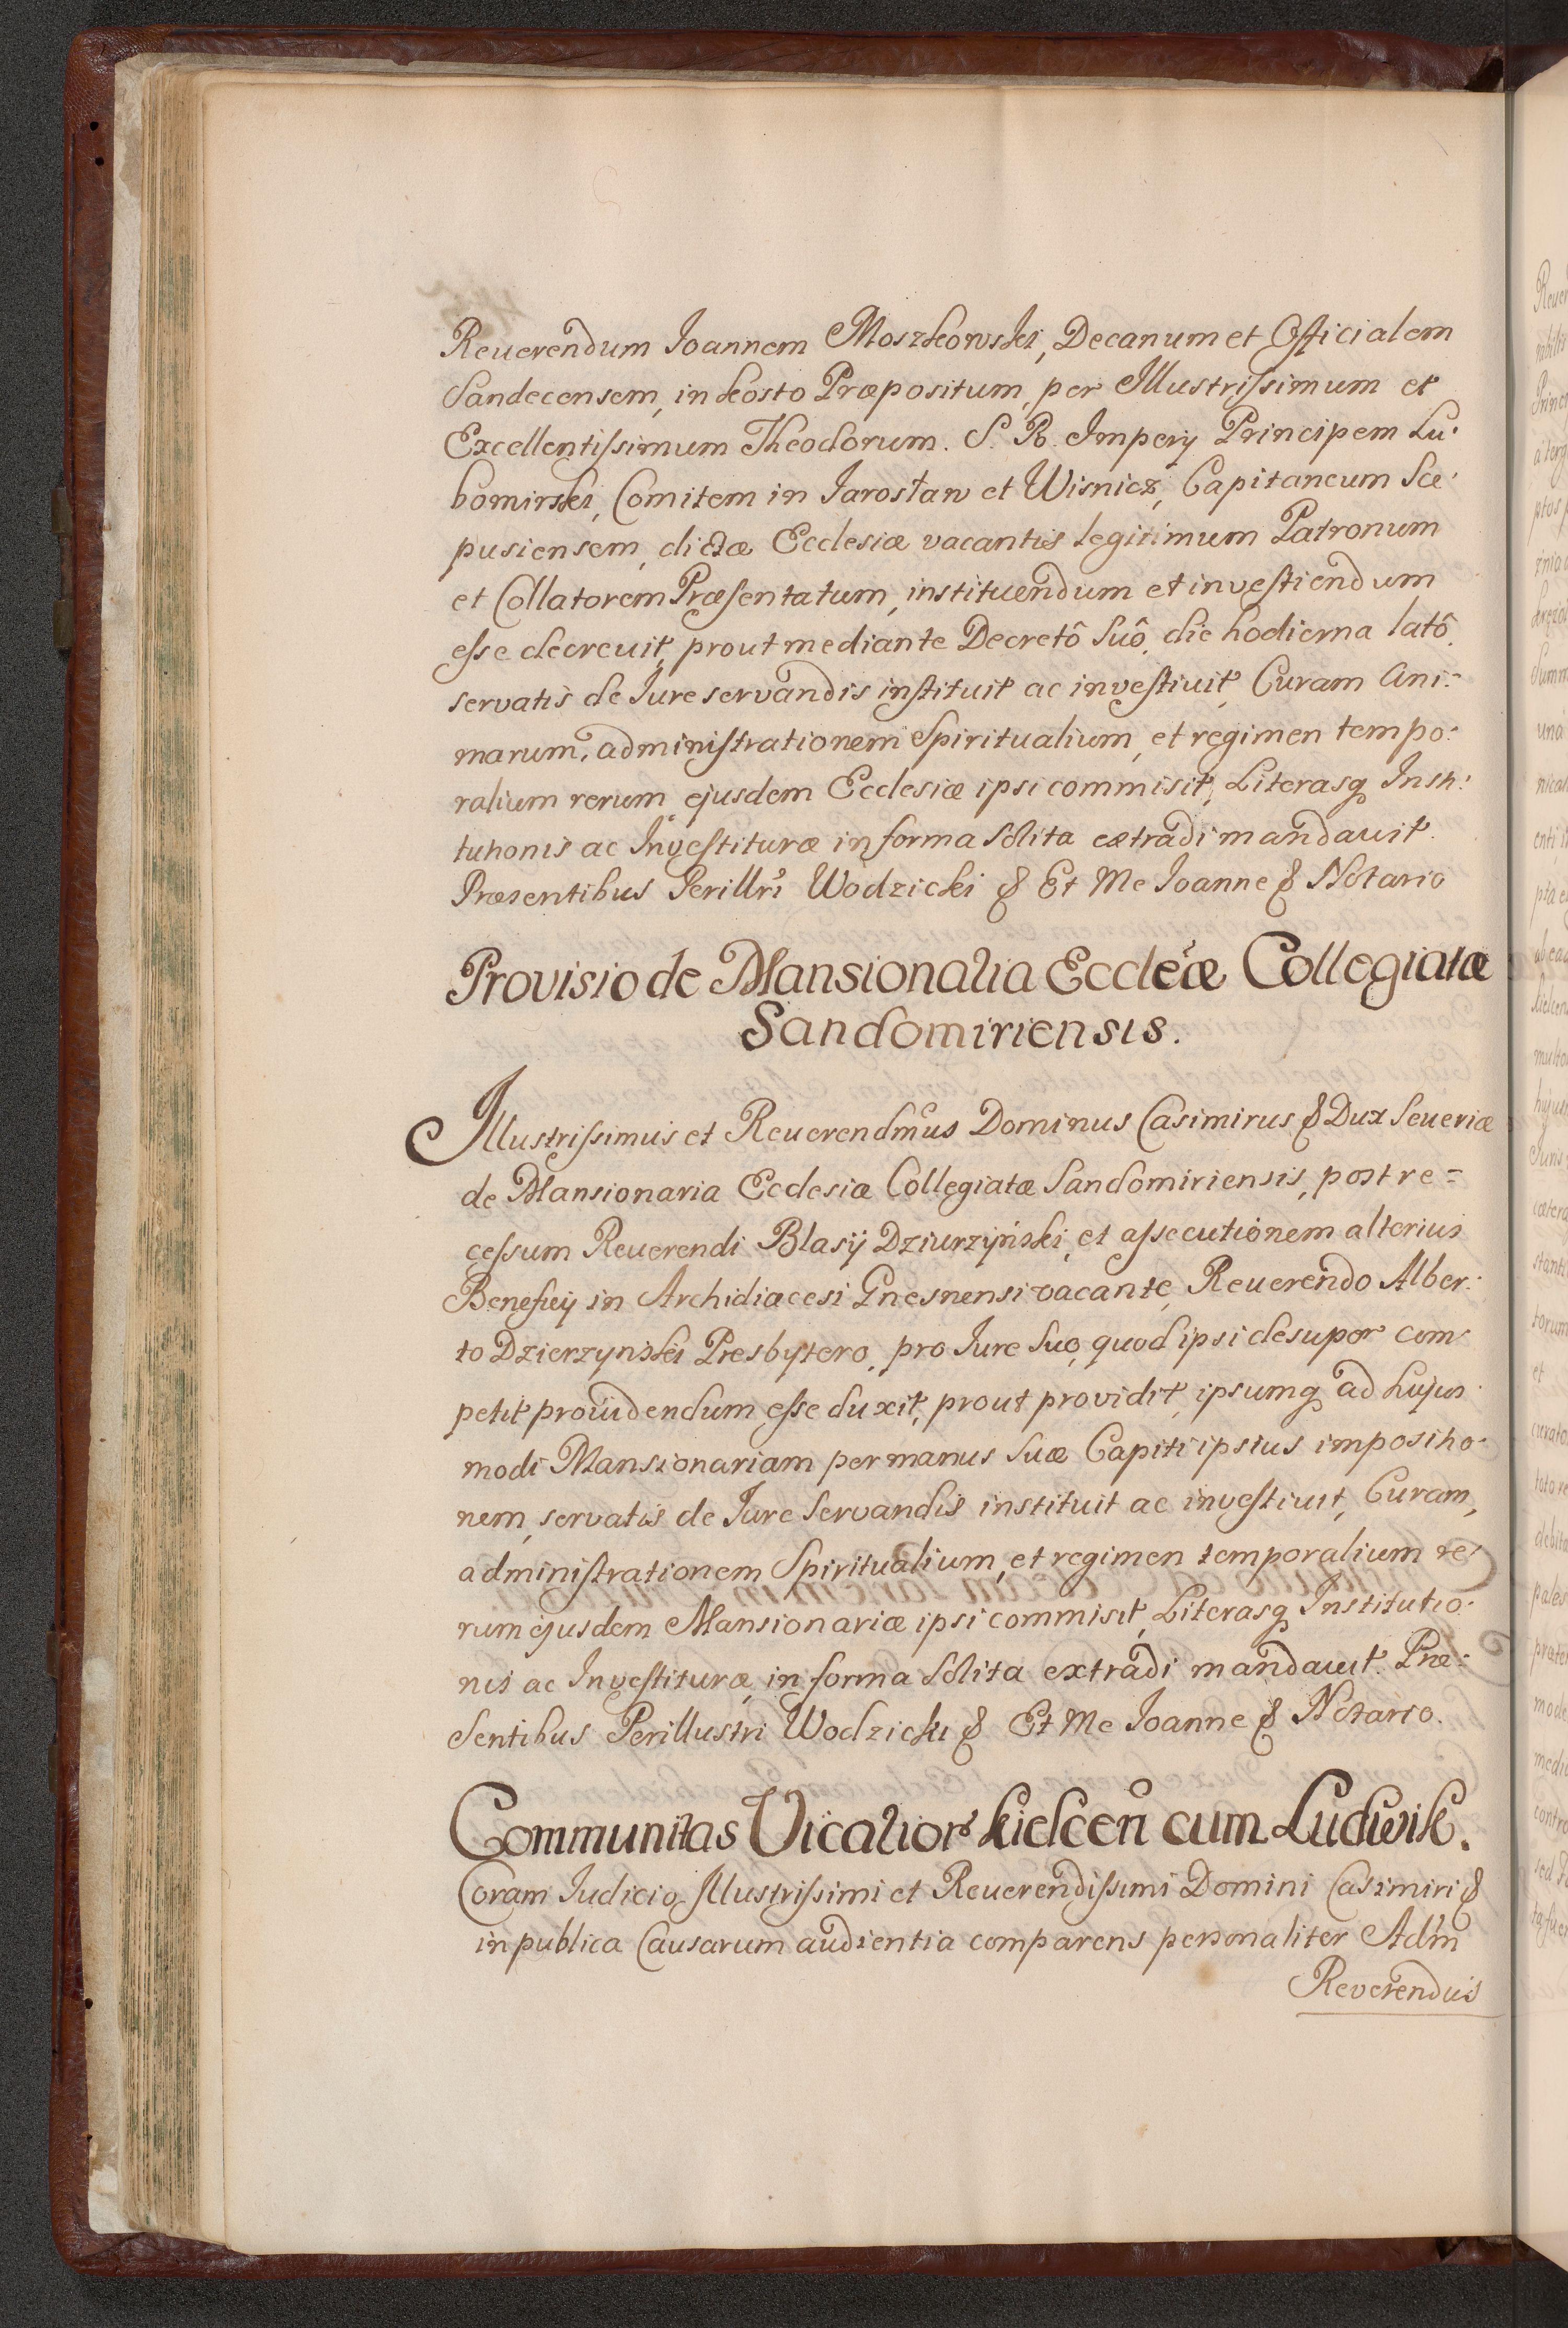 Reverendum Joannem Moszkowski, Decanum et Officialem
Sandecensem, in kosto Præpositum, per Illustrissimum et
Excellentissimum Theodorum. S. R. Imperij Principem Lu:
bomirski, Comitem in Jarosław et Wisnicz, Capitaneum Sce:
pusiensem, dictæ Ecclesiæ vacantis legitimum Patronum
et Collatorem Præsentatum, instituendum et investiendum
esse decreuit, prout mediante Decretô Suô, die hodierna latô,
servatis de Jure servandis instituit ac investiuit, Curam Ani:
marum, administrationem Spiritualium, et regimen tempo:
ralium rerum ejusdem Ecclesiæ ipsi commisit, Literasq Insti:
tutionis ac Investituræ in forma Solita extradi mandauit.
Præsentibus Perillri Wodzicki & Et Me Joanne & Notario
Provisio de Mansionaria Eccleæ Collegiatæ
Sandomiriensis.
Illustrissimus et Reuerendmus Dominus Casimirus & Dux Seueriæ
de Mansionaria Ecclesiæ Collegiatæ Sandomiriensis, post re=
cessum Reuerendi Blasij Dziurzyński, et assecutionem alterius
Beneficij in Archidiæcesi Gnesnensi vacante, Reuerendo Alber:
to Dzierzynski Presbytero, pro Jure Suo, quod ipsi desuper com:
petit prouidendum esse duxit, prout providit, ipsumq ad hujus:
modi Mansionariam per manus Suæ Capiti ipsius impositio:
nem, servatis de Jure Servandis instituit ac investiuit, Curam,
administrationem Spiritualium, et regimen temporalium re:
rum ejusdem Mansionariæ ipsi commisit, Literasq Institutio:
nis ac Investituræ in forma Solita extradi mandauit. Præ:
Sentibus Perillustri Wodzicki & Et Me Joanne & Notario.
Communitas Vicarior kielcen cum Ludwik.
Coram Judicio Illustrissimi et Reuerendissimi Domini Casimiri &
in publica Causarum audientia comparens personaliter Adm
Reverendus